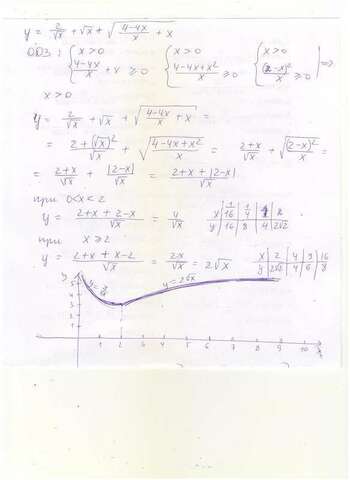 y = 2/√x + √x + √((4-4x)/x + x)
ОДЗ: { x > 0 { x > 0 { x > 0
(4-4x)/x + x ≥ 0 (4-4x+x²)/x ≥ 0 (2-x)²/x ≥ 0 | ⇒
x > 0
y = 2/√x + √x + √((4-4x)/x + x) =
= (2+(√x)²)/√x + √((4-4x+x²)/x) = (2+x)/√x + √((2-x)²/x) =
= (2+x)/√x + |2-x|/√x = (2+x+|2-x|)/√x
при 0<x<2
y = (2+x+2-x)/√x = 4/√x x | 1/16 | 1/4 | 1 | 2
y | 16 | 8 | 4 | 2√2
при x ≥ 2
y = (2+x+x-2)/√x = 2x/√x = 2√x x | 2 | 4 | 9 | 16
y | 2√2 | 4 | 6 | 8
y
5
4
3
2
1
y = 2√x
1 2 3 4 5 6 7 8 9 10 x